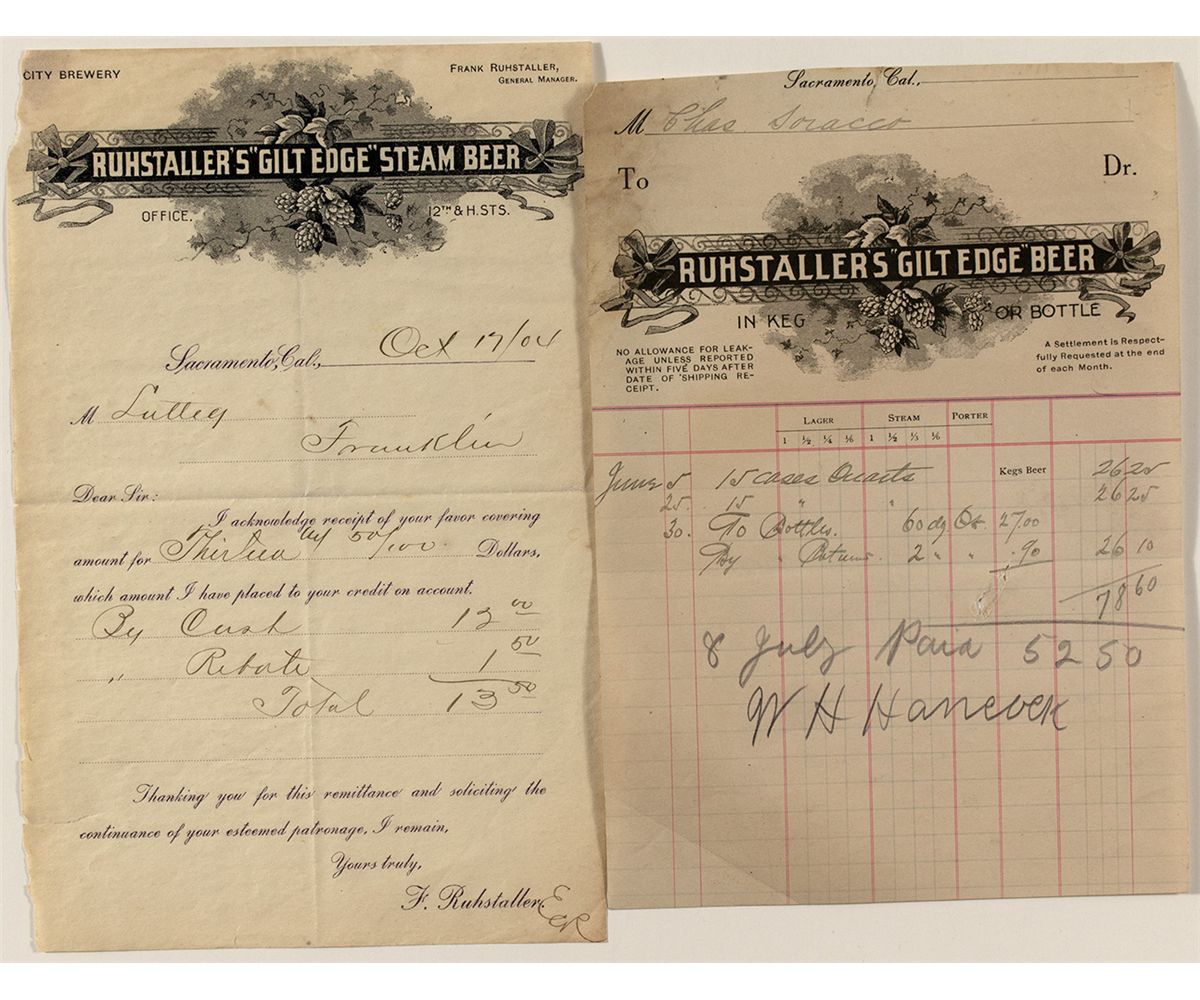 CITY BREWERY
FRANK RUHSTALLER,
GENERAL MANAGER.
RUHSTALLER'S "GILT EDGE" STEAM BEER
OFFICE. 12TH & H. STS.
Sacramento, Cal., Oct 17/04
M
Franklin
Dear Sir:
I acknowledge receipt of your favor covering
amount for Thirteen 50/100 Dollars,
which amount I have placed to your credit on account.
By Cash 12 00
" Rebate 1 50
Total 13 50
Thanking you for this remittance and soliciting the
continuance of your esteemed patronage, I remain,
Yours truly,
F. Ruhstaller.
Sacramento, Cal.,
M Chas Soracco
To Dr.
RUHSTALLER'S "GILT EDGE" BEER
IN KEG OR BOTTLE
NO ALLOWANCE FOR LEAK-
AGE UNLESS REPORTED
WITHIN FIVE DAYS AFTER
DATE OF SHIPPING RE-
CEIPT.
A Settlement is Respect-
fully Requested at the end
of each Month.
LAGER STEAM PORTER
1 ½ ¼ ⅙ 1 ½ ⅓ ⅙
June 5 15 cases Quarts Kegs Beer 26 25
25. 15 " " 26 25
30. To Bottles. 60 dz Qt. 27.00
By " Return. 2 " " .90 26 10
78 60
8 July Paid 52 50
W H Hancock